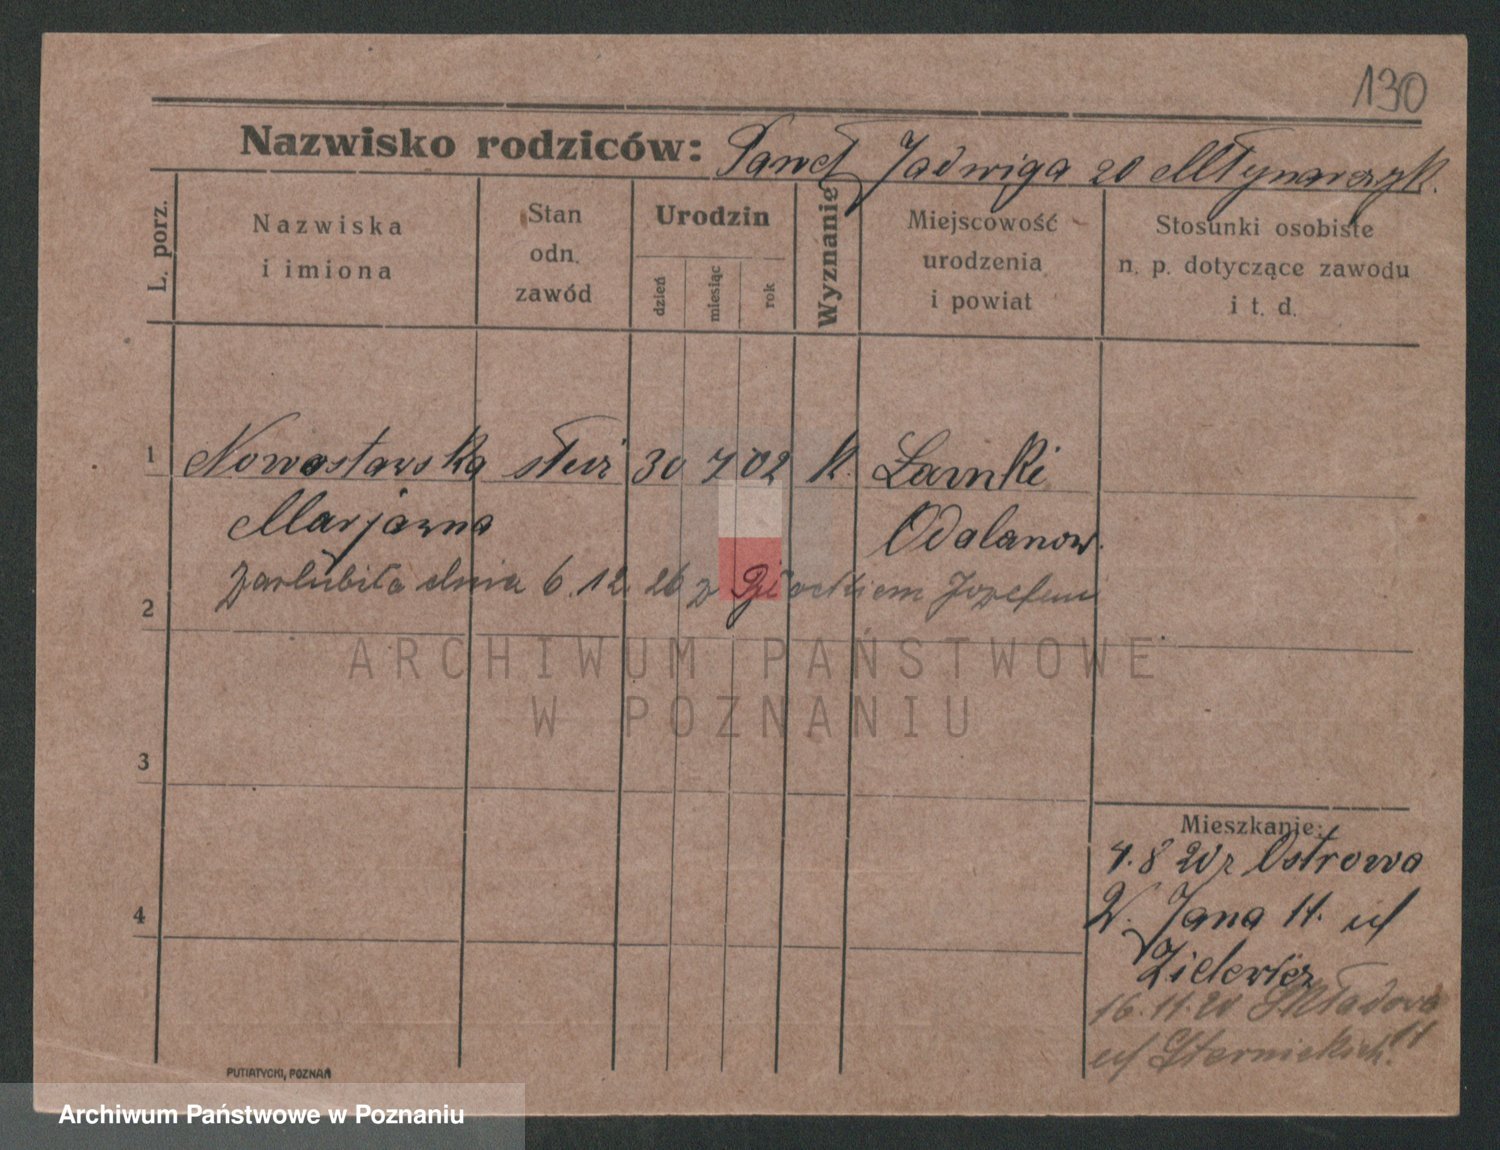 130
Nazwisko rodziców: Paweł Jadwiga zd Młynarczyk.
L. porz.
Nazwiska
i imiona
Stan
odn.
zawód
Urodzin
dzień
miesiąc
rok
Wyznanie
Miejscowość
urodzenia
i powiat
Stosunki osobiste
n. p. dotyczące zawodu
i t. d.
1 Nowostawska służ 30 7 02 k. Łamki
Marjanna Odalanow.
zaślubiła dnia 6.12.26 z Józefem
2
ARCHIWUM PAŃSTWOWE
W POZNANIU
3
4
Mieszkanie:
4.8 20 z Ostrowa
W. Jana 11. u/
Zielewicz
16.11.20 Składowa 11
u/
PUTIATYCKI, POZNAŃ
Archiwum Państwowe w Poznaniu